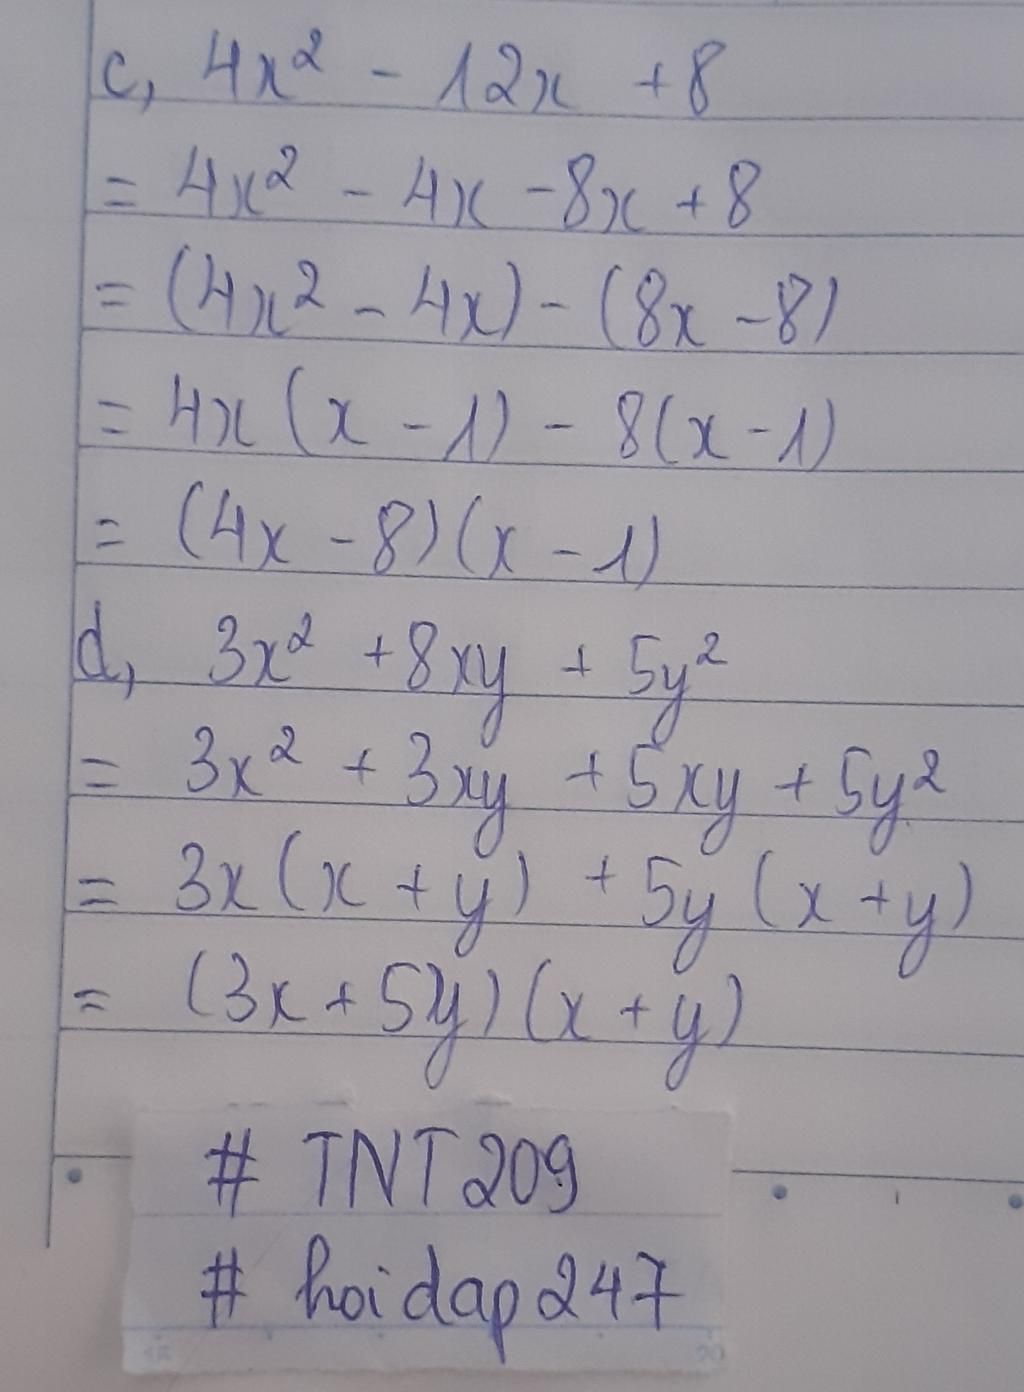 c, 4x² - 12x + 8
= 4x² - 4x - 8x + 8
= (4x² - 4x) - (8x - 8)
= 4x (x - 1) - 8(x - 1)
= (4x - 8)(x - 1)
d, 3x² + 8xy + 5y²
= 3x² + 3xy + 5xy + 5y²
= 3x (x + y) + 5y (x + y)
= (3x + 5y)(x + y)
# TNT209
# hoidap247
20